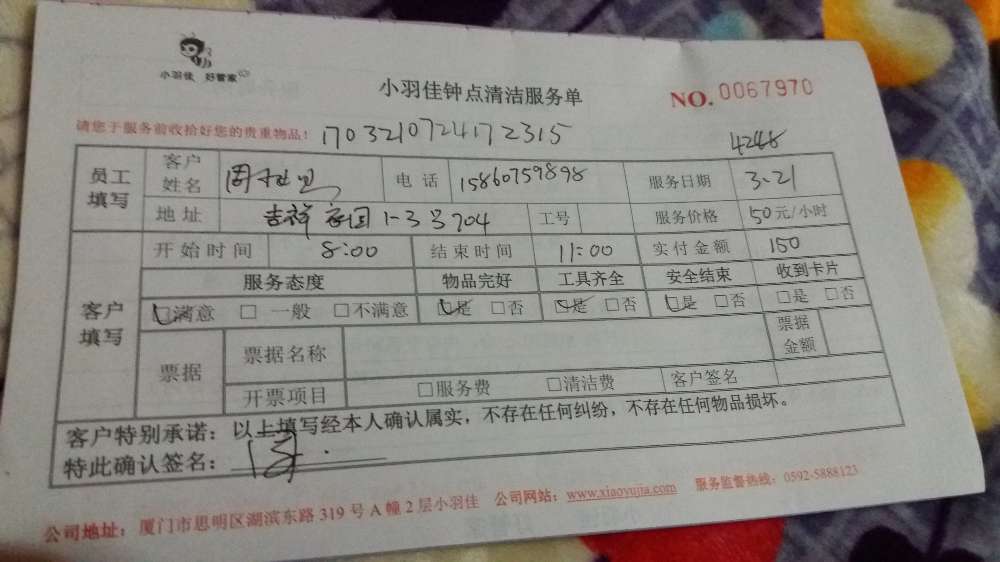 小羽佳 好管家
小羽佳钟点清洁服务单
NO. 0067970
请您于服务前收拾好您的贵重物品! 1703210724172315
4248
员工填写 客户姓名 周 电话 15860759898 服务日期 3.21
地址 吉祥家园1-3号704 工号 服务价格 50元/小时
客户填写 开始时间 8:00 结束时间 11:00 实付金额 150
服务态度 物品完好 工具齐全 安全结束 收到卡片
□满意 □一般 □不满意 □是 □否 □是 □否 □是 □否 □是 □否
票据 票据名称 票据金额
开票项目 □服务费 □清洁费 客户签名
客户特别承诺:以上填写经本人确认属实,不存在任何纠纷,不存在任何物品损坏。
特此确认签名:
公司地址:厦门市思明区湖滨东路319号A幢2层小羽佳 公司网站:www.xiaoyujia.com 服务监督热线:0592-5888123